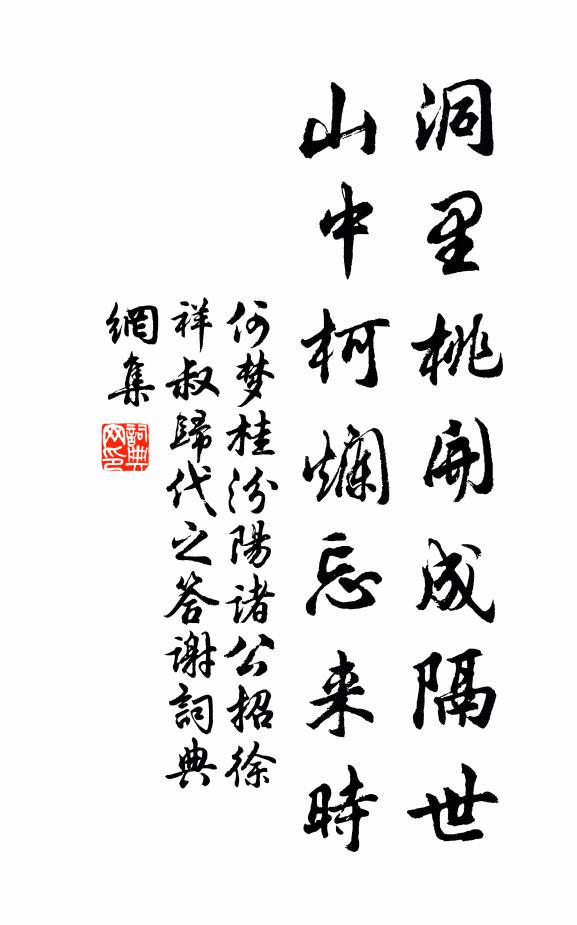 洞里桃開成隔世
山中柯爛忘来時
何梦桂汾陽诸公招徐
祥叔歸代之答谢詞典
網集
詞典
网印